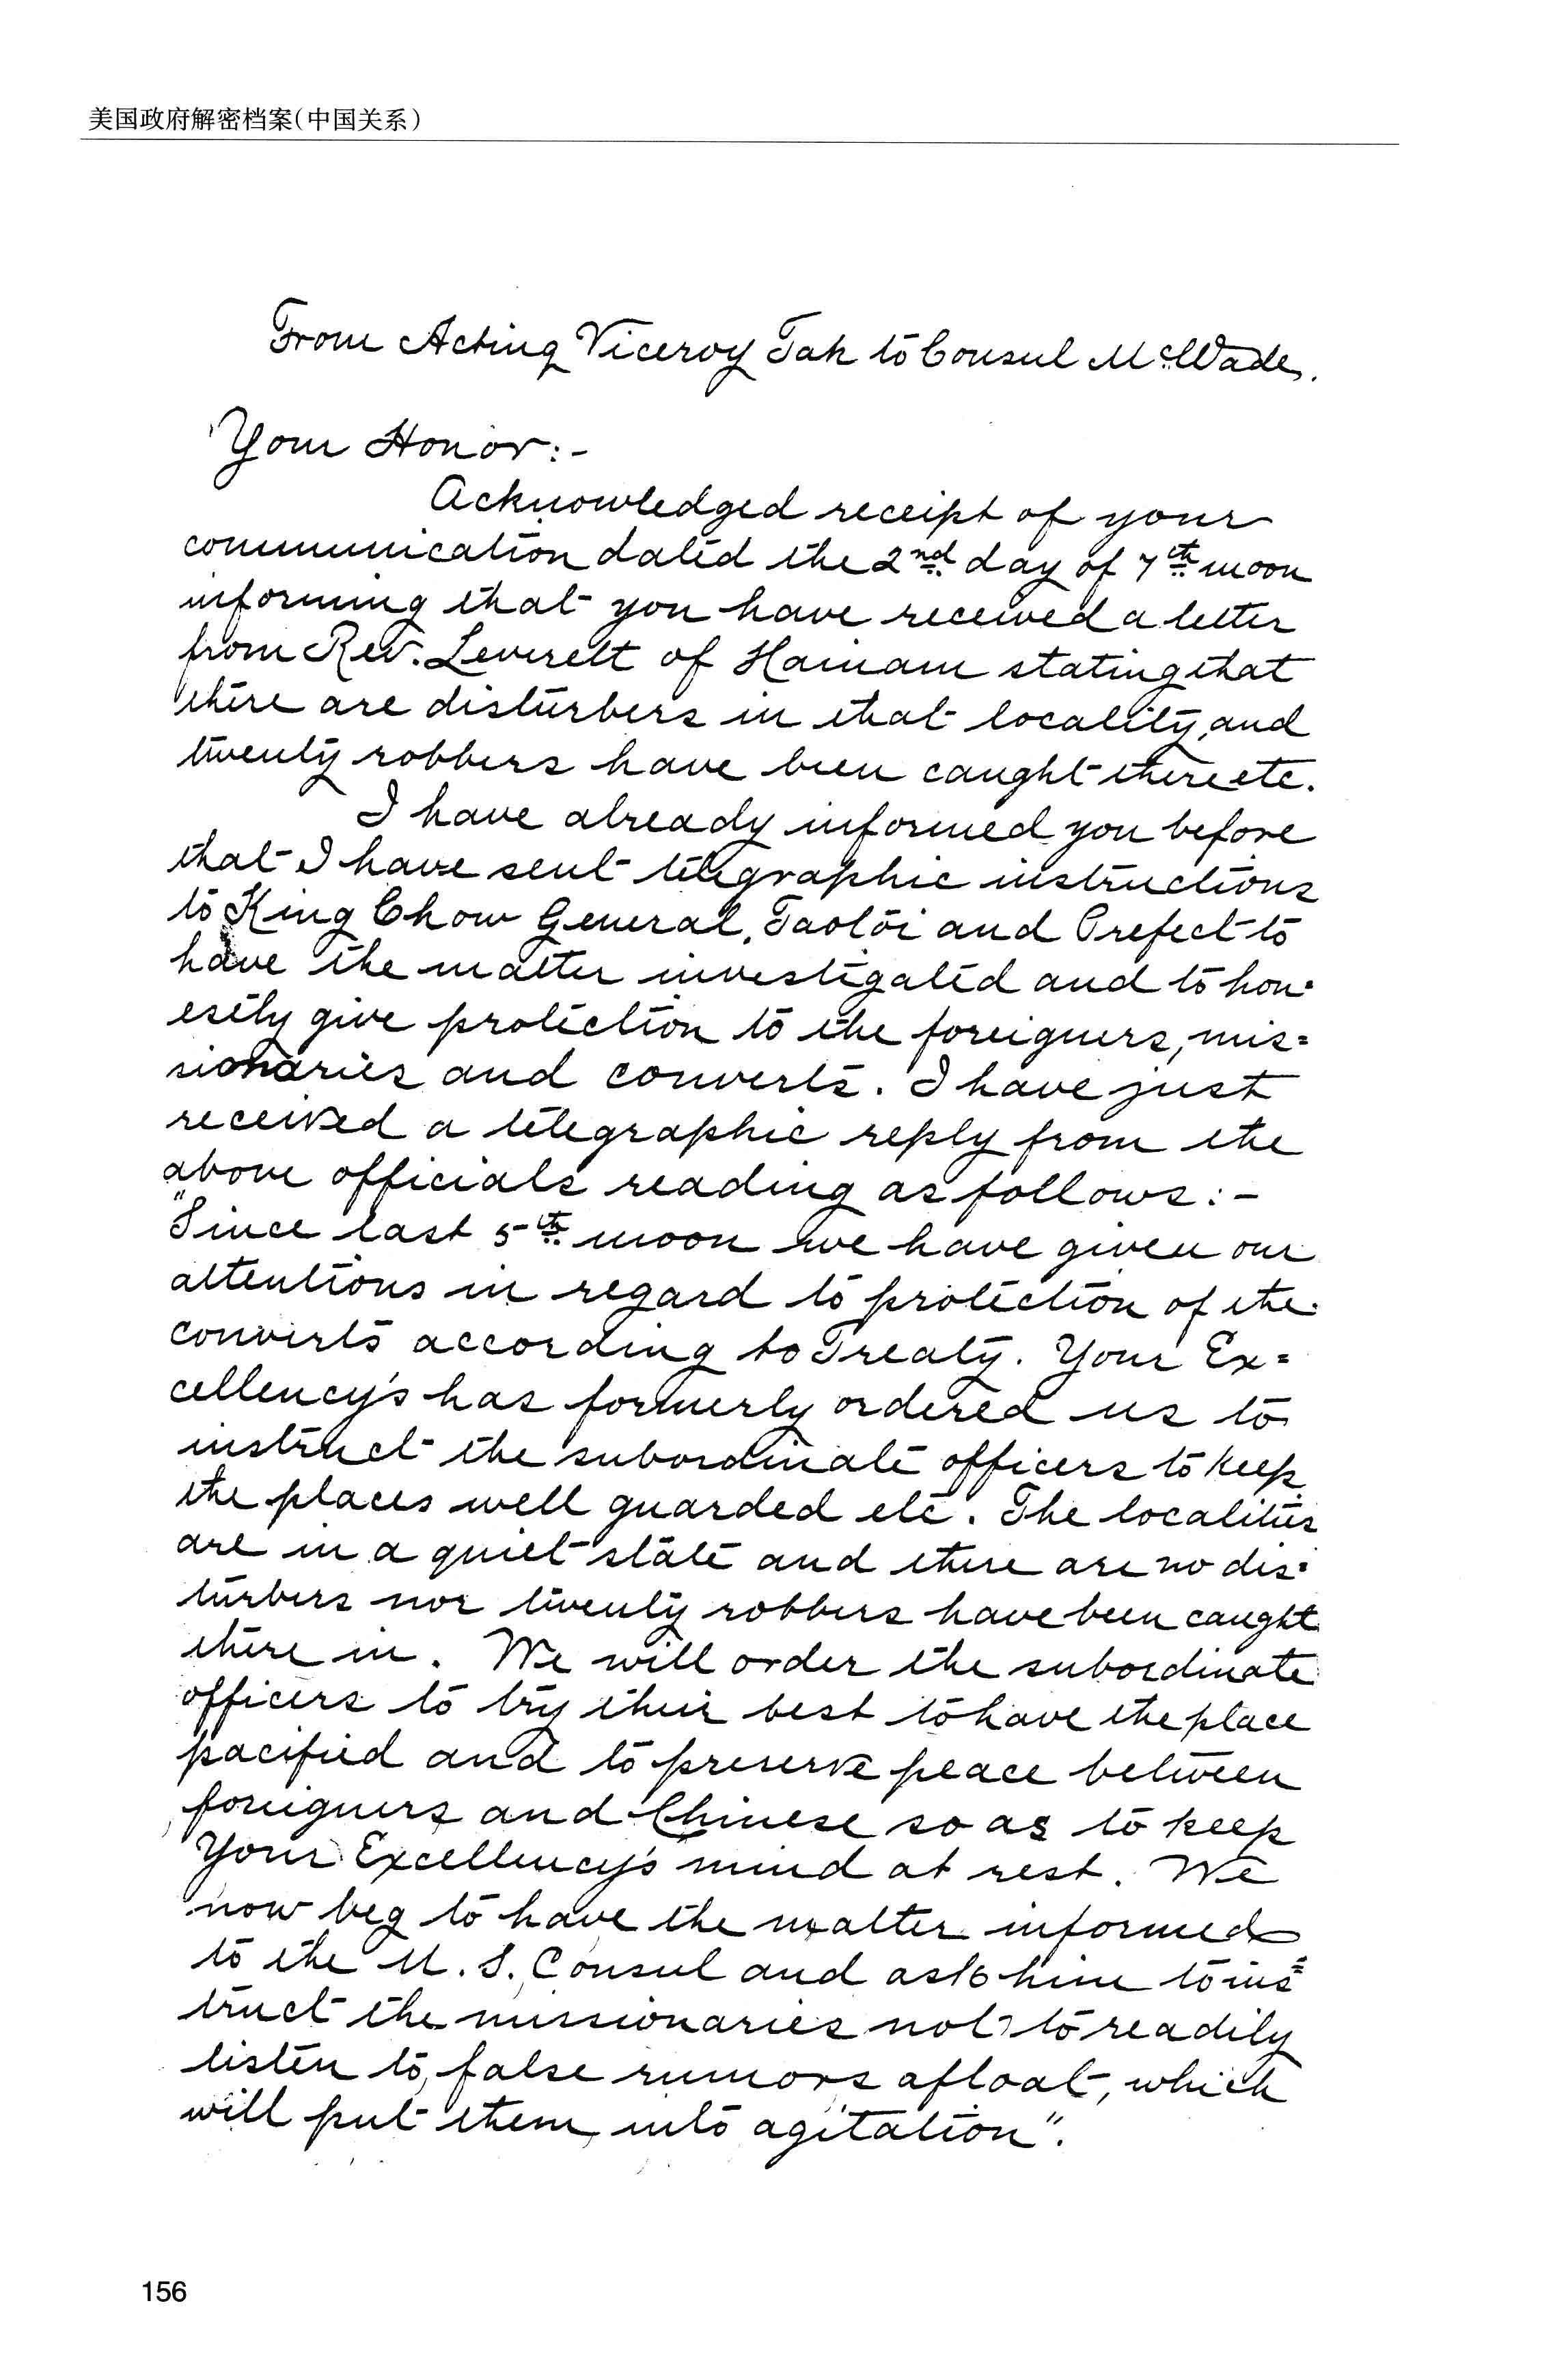 美国政府解密档案(中国关系)
From Acting Viceroy Tak to Consul McWade.
Your Honor:-
Acknowledged receipt of your
communication dated the 2nd day of 7th moon
informing that you have received a letter
from Rev. Leverett of Hainam stating that
there are disturbers in that locality, and
twenty robbers have been caught there etc.
I have already informed you before
that I have sent telegraphic instructions
to King Chow General, Taotoi and Prefect to
have the matter investigated and to hon-
estly give protection to the foreigners, mis=
sionaries and converts. I have just
received a telegraphic reply from the
above officials reading as follows:-
"Since last 5th moon we have given our
attentions in regard to protection of the
converts according to Treaty. Your Ex=
cellency's has formerly ordered us to
instruct the subordinate officers to keep
the places well guarded etc. The localities
are in a quiet state and there are no dis-
turbers nor twenty robbers have been caught
there in. We will order the subordinate
officers to try their best to have the place
pacified and to preserve peace between
foreigners and Chinese so as to keep
Your Excellency's mind at rest. We
now beg to have the matter informed
to the U. S. Consul and ask him to ins=
truct the missionaries not to readily
listen to false rumors afloat, which
will put them into agitation".
156